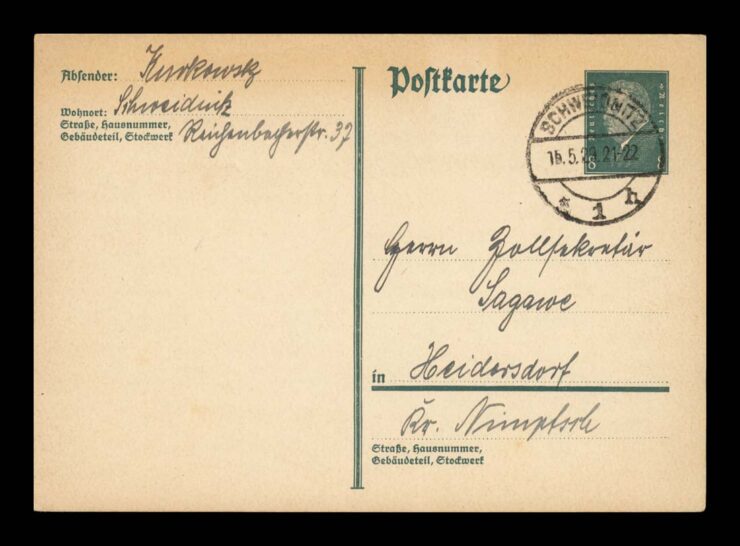 Absender: Kurkowsky
Wohnort: Schweidnitz
Straße, Hausnummer,
Gebäudeteil, Stockwerk Reichenbacherstr. 37
Postkarte
SCHWEIDNITZ
15.5.29.21-22
* 1 h
8 8
Herrn Zollsekretär
Sagawe
in Heidersdorf
Kr. Nimptsch
Straße, Hausnummer,
Gebäudeteil, Stockwerk